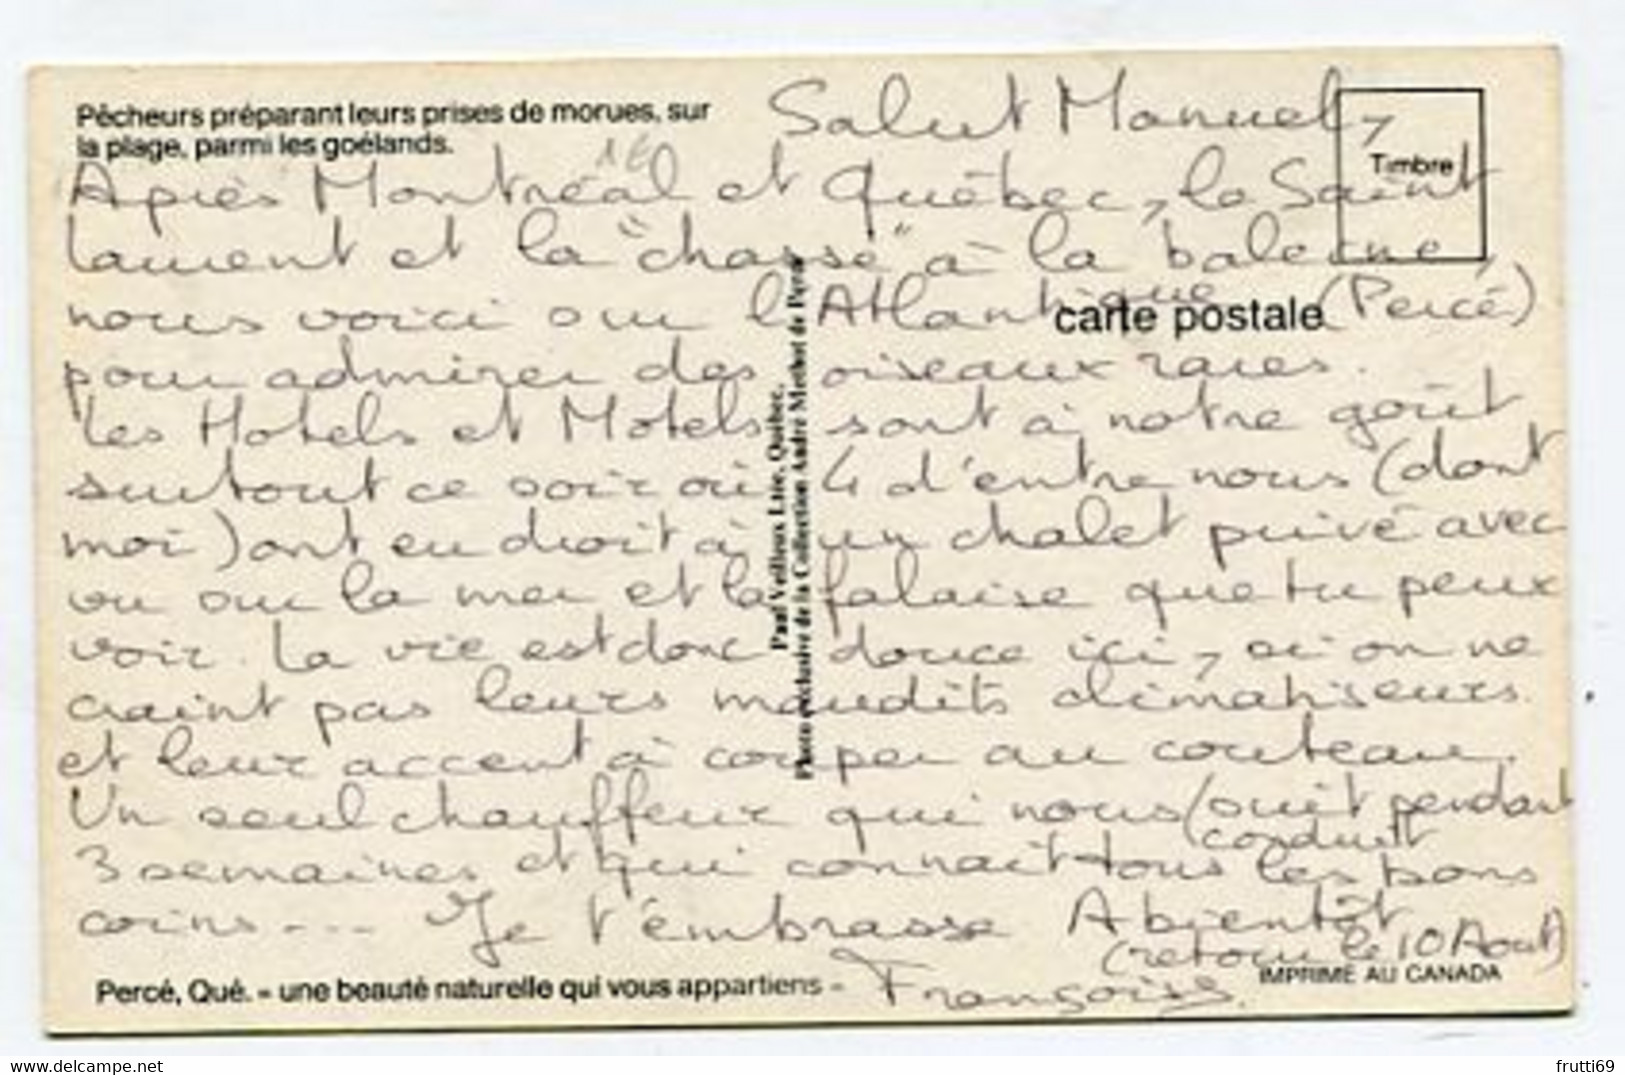 Pêcheurs préparant leurs prises de morues, sur
la plage, parmi les goélands.
Timbre
carte postale
Salut Manuel,
Après Montréal et Québec, le Saint
Laurent et la "chasse" à la baleine,
nous voici sur l'Atlantique (Percé)
pour admirer des oiseaux rares.
Les Hotels et Motels sont à notre goût,
surtout ce soir où 4 d'entre nous (dont
moi) ont eu droit à un chalet privé avec
vu sur la mer et la falaise que tu peux
voir. La vie est donc douce ici, si on ne
craint pas leurs maudits climatiseurs
et leur accent à couper au couteau.
Un seul chauffeur qui nous (suit pendant
conduit
3 semaines et qui connaît tous les bons
coins --- Je t'embrasse A bientôt
(retour le 10 Aout)
Françoise.
Paul Veilleux Ltée, Québec.
Photo exclusive de la Collection André Méthot de Percé
Percé, Qué. – une beauté naturelle qui vous appartiens –
IMPRIMÉ AU CANADA
www.delcampe.net
frutti69